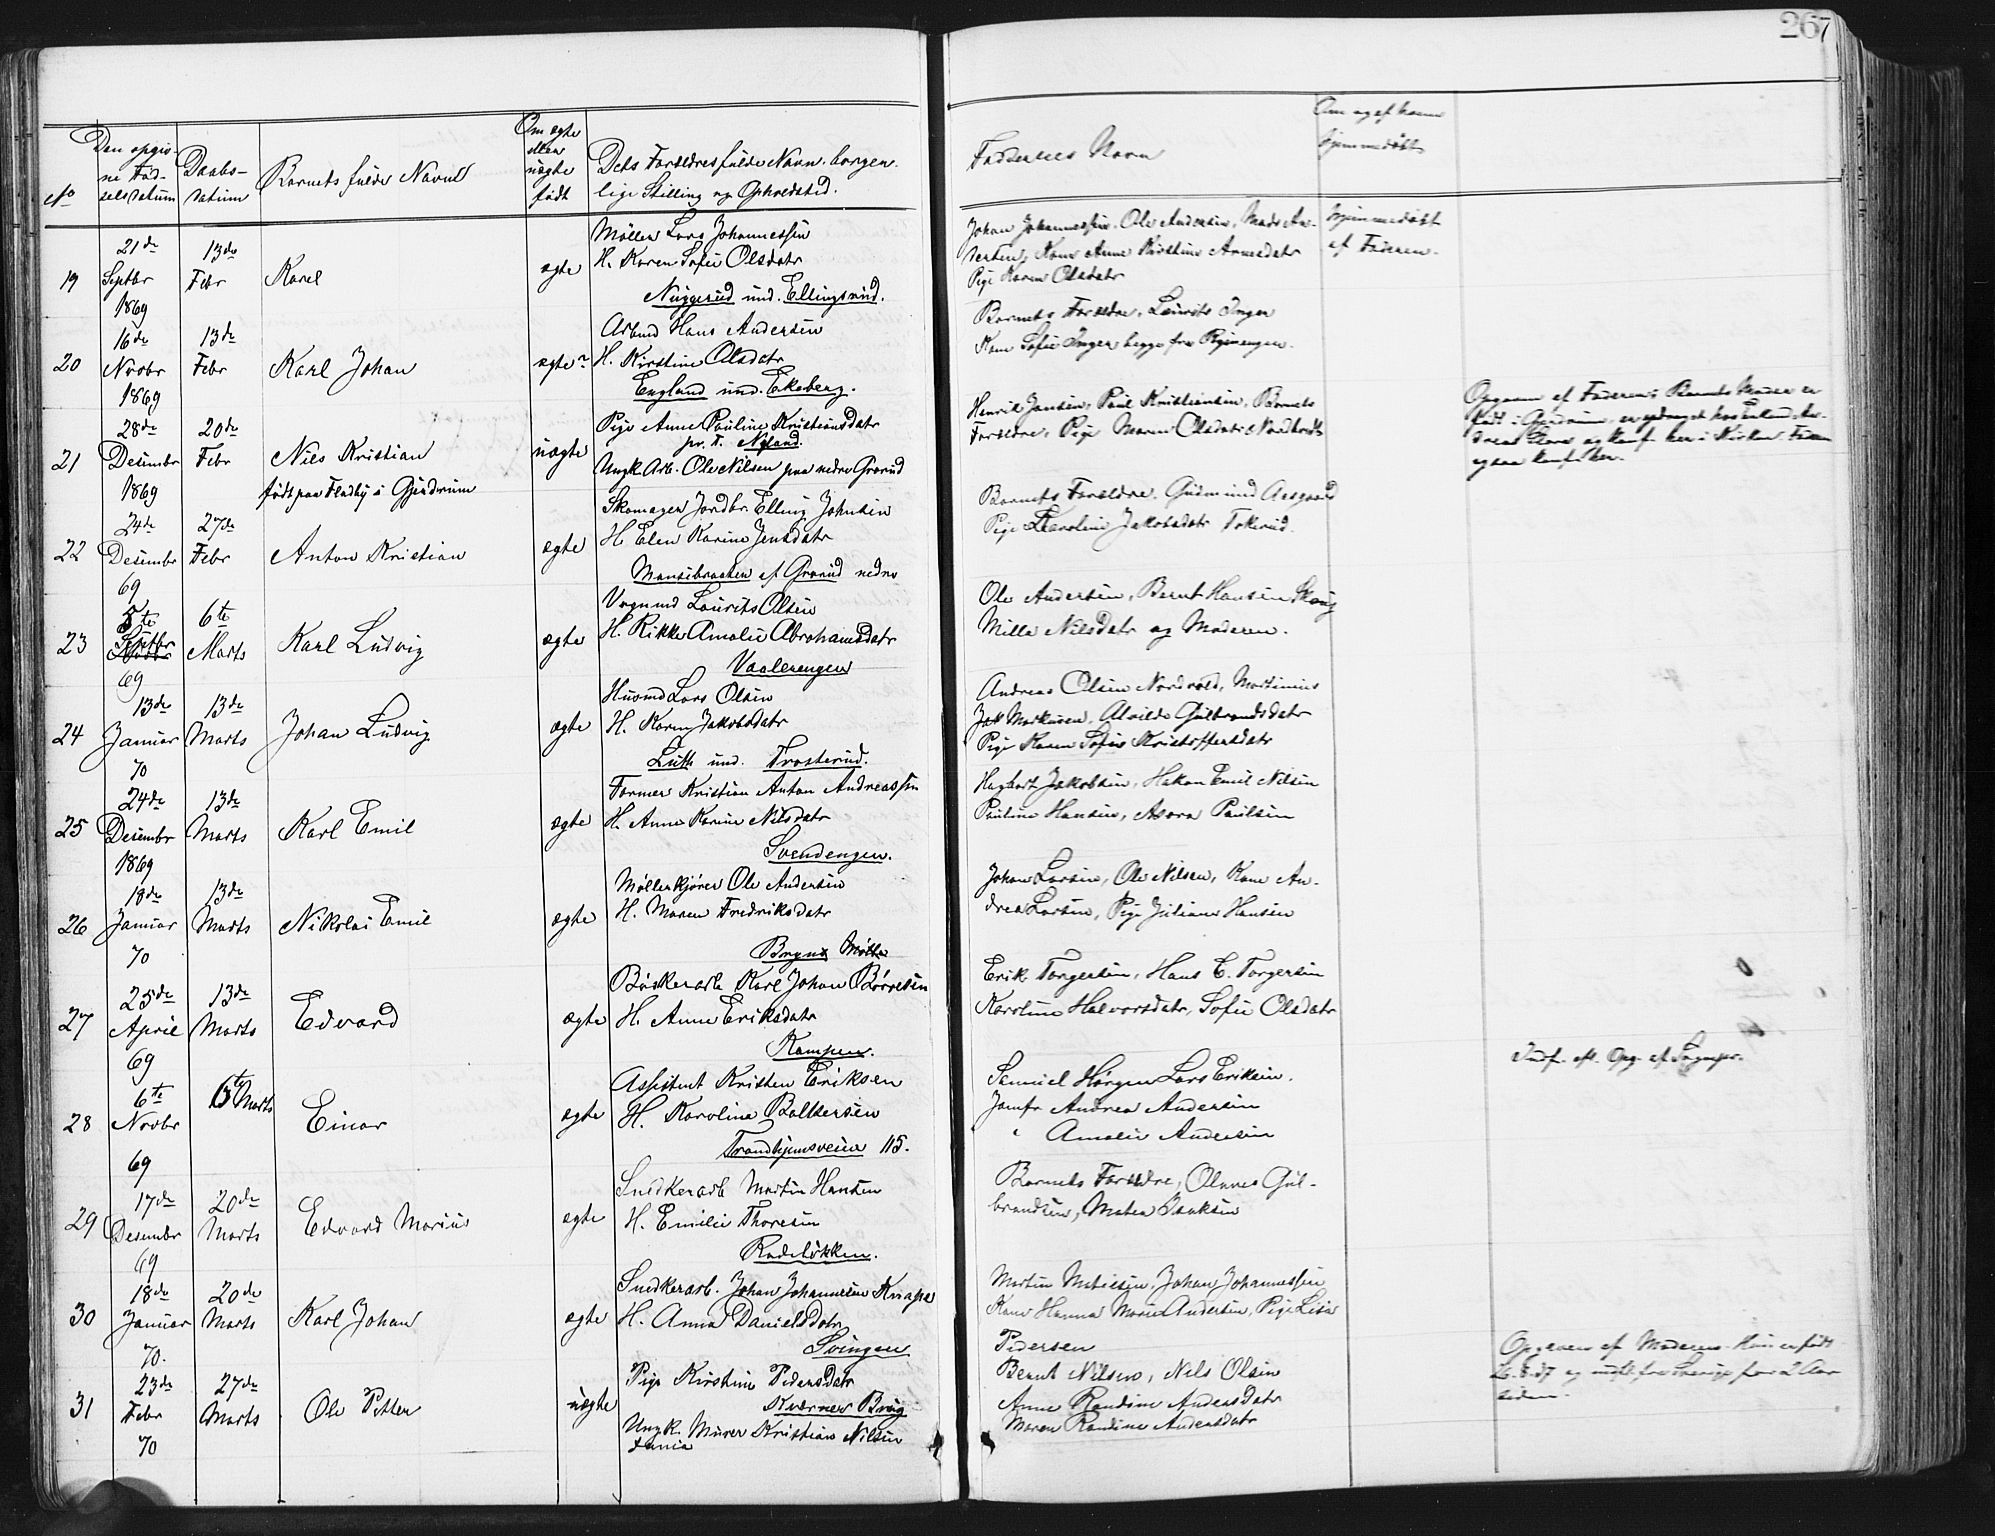 267
No
Den opgivne Fødselsdatum
Daabsdatum
Barnets fulde Navn
Om ægte eller uægte født
Dets Forældres fulde Navn, borgerlige Stilling og Opholdsted.
Faddernes Navn
Om og af hvem hjemmedøbt
19
21de Septbr 1869
13de Febr
Karel
ægte
Møller Lars Johannessen
H. Karen Sofie Olsdatr
und. Ellingsrud.
Johan Johannessen, Ole Andersen, Mads An-
Kone Anne Kirstine Arnesdatr
Pige Karen Olsdatr
Hjemmedøbt
af Faderen.
20
16de Novbr 1869
13de Febr
Karl Johan
ægte
Arbmd Hans Andersen
H. Kirstine Olsdatr
England und. Ekeberg.
Barnets Forældre, Laurits Inger
Kone Sofie Inger begge fra
21
28de Desembr 1869
20de Febr
Nils Kristian
født paa Fladby i Gjerdrum
uægte
Pige Anne Pauline Kristiansdatr
pr. T. Nyland.
Ungk. Arb. Ole Nilsen paa nedre Grorud
Henrik Jansen, Paul Kristiansen, Barnets
Forældre, Pige Maren Olsdatr
Opgaven af Faderen; Barnets Moder er
født i Gjerdrum,
22
24de Desembr 69
27de Febr
Anton Kristian
ægte
Skomager Jordbr. Elling Johnsen
H. Elen Karine Jensdatr
Mansebraaten af Grorud nedre
Barnets Forældre, Gudmund Aasgaard
Pige Karoline Jakobsdatr Tokerud.
23
5te Septbr 69
6te Marts
Karl Ludvig
ægte
Vognmd Laurits Olsen
H. Rikke Amalie Abrahamsdatr
Vaalerengen
Ole Andersen, Bernt Hansen Skoug
Mille Nilsdatr og Moderen.
24
13de Januar 70
13de Marts
Johan Ludvig
ægte
Husmd Lars Olsen
H. Karen Jakobsdatr
und. Trosterud.
Andreas Olsen Nordvold, Martinius
Jak Markusen, Alvilde Gulbrandsdatr
Pige Karen Sofie Kristoffersdatr
25
24de Desembr 1869
13de Marts
Karl Emil
ægte
Former Kristian Anton Andreassen
H. Anne Karine Nilsdatr
Svendengen.
Hagbart Jakobsen, Hakon Emil Nilsen
Pauline Hansen, Asora Paulsen
26
18de Januar 70
13de Marts
Nikolai Emil
ægte
Møllerkjører Ole Andersen
H. Maren Fredriksdatr
Bryns Mølle
Johan Larsen, Ole Nilsen, Kone An-
drea Larsen, Pige Juliane Hansen
27
25de April 69
13de Marts
Edvard
ægte
Karl Johan Børresen
H. Anne Eriksdatr
Kampen.
Erik Torgersen, Hans E. Torgersen
Karoline Halvorsdatr, Sofie Olsdatr
28
6te Novbr 69
6te Marts
Einar
ægte
Assistent Kristen Eriksen
H. Karoline Baltersen
Trondhjemsveien 115.
Samuel Hørgen Lars Eriksen.
Jomfr Andrea Andersen
" Amalie Andersen
Indf. eft. Opg. af Sognepr.
29
17de Desembr 69
20de Marts
Edvard Marius
ægte
Snedkerarb Martin Hansen
H. Emilie Thoresen
Rodeløkken.
Barnets Forældre, Olaves Gul-
brandsen, Matea Isaksen
30
18de Januar 70.
20de Marts
Karl Johan
ægte
Snedkerarb. Johan Johannesen Knapa
H. Anna Danielsdatr
Svingen
Martin Matiesen, Johan Johannessen
Kone Hanna Marie Andersen, Pige Lisa
Pedersen
31
23de Febr 70
27de Marts
Ole Petter
uægte
Pige Kirstine Pedersdatr
Kværner Brug
Ungk. Murer Kristian Nilsen
Bernt Nilsen, Nils Olsen
Anne Randine Andersdatr
Maren Randine Andersdatr
Opgaven af Moderen. Hun er født
og indfl. fra Sverige for 2 Aar
siden.